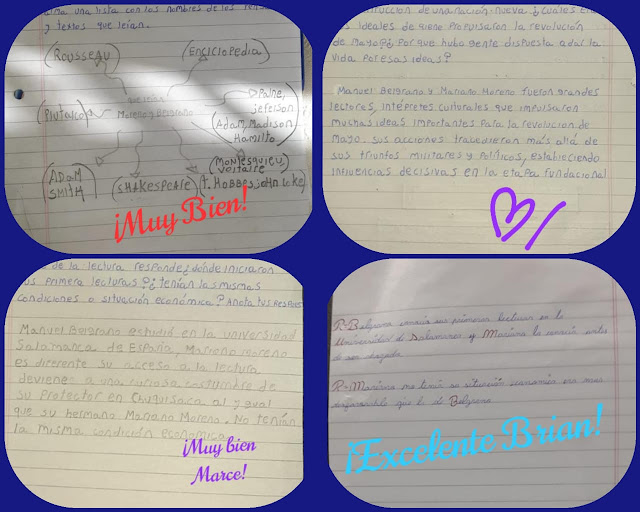 una lista con los nombres de los
y textos que leían.
ROUSSEAU
ENCICLOPEDIA
que leían
Moreno y Belgrano
Plutarco
Paine,
jeferson
Adam, Madison
Hamilto,
ADAM
SMITH
SHAKESPEARE
Montesquieu,
Voltaire
t. HOBBES, john Loke
¡Muy Bien!
de una nación nueva ¿cuáles
ideales de
de Mayo? ¿Por que hubo gente dispuesta a dar la
vida por esas ideas?
Manuel Belgrano y Mariano Moreno fueron grandes
lectores, intérpretes culturales que impulsaron
muchas ideas importantes para la revolución de
Mayo. sus acciones
más allá de
sus triunfos militares y políticos, estableciendo
influencias decisivas en la etapa fundacional
de la lectura responde ¿dónde iniciaron
sus primera lecturas? ¿tenían las mismas
condiciones o situación económica? Anota tus
Manuel Belgrano estudió en la universidad
Salamanca de España, Mariano moreno
es diferente su acceso a la lectura
deviene a una curiosa costumbre de
su protector en Chuquisaca al ygual
que su hermano Mariano Moreno. No tenían
la misma condición económica
¡Muy bien
Marce!
R-Belgrano
sus primeras lecturas en la
Universidad de Salamanca y Mariano lo
antes
de ser abogado
R-Mariano no tenía
situación económica era mas
que la de Belgrano
¡Excelente Brian!